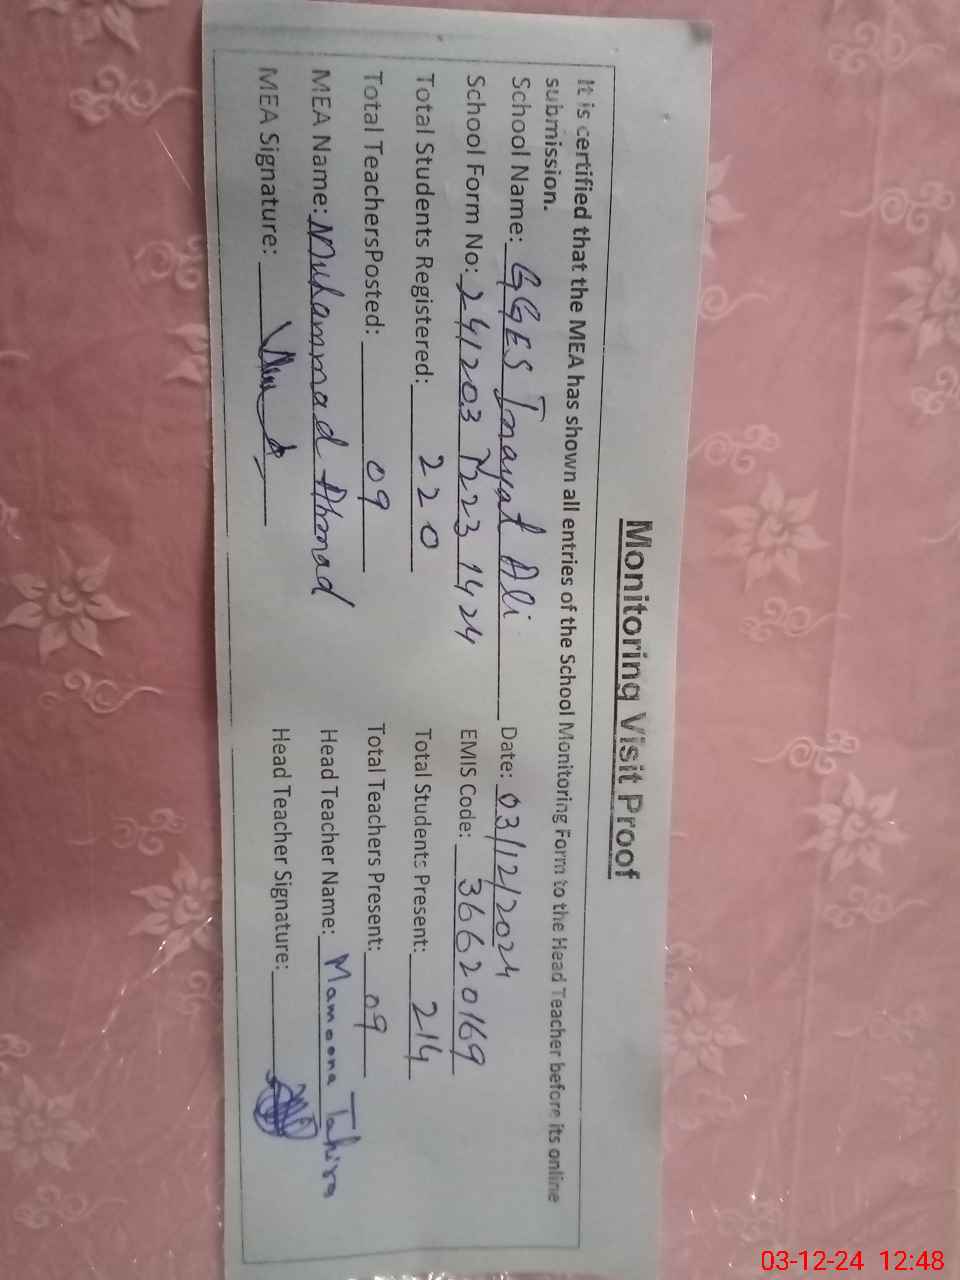 Monitoring Visit Proof
It is certified that the MEA has shown all entries of the School Monitoring Form to the Head Teacher before its online
submission.
School Name: GGES Inayat Ali Date: 03/12/2024
School Form No: 241203 1223 1424 EMIS Code: 36620169
Total Students Registered: 220 Total Students Present: 214
Total TeachersPosted: 09 Total Teachers Present: 09
MEA Name: Muhammad Ahmad Head Teacher Name: Mamoona Tahira
MEA Signature: Head Teacher Signature:
03-12-24 12:48